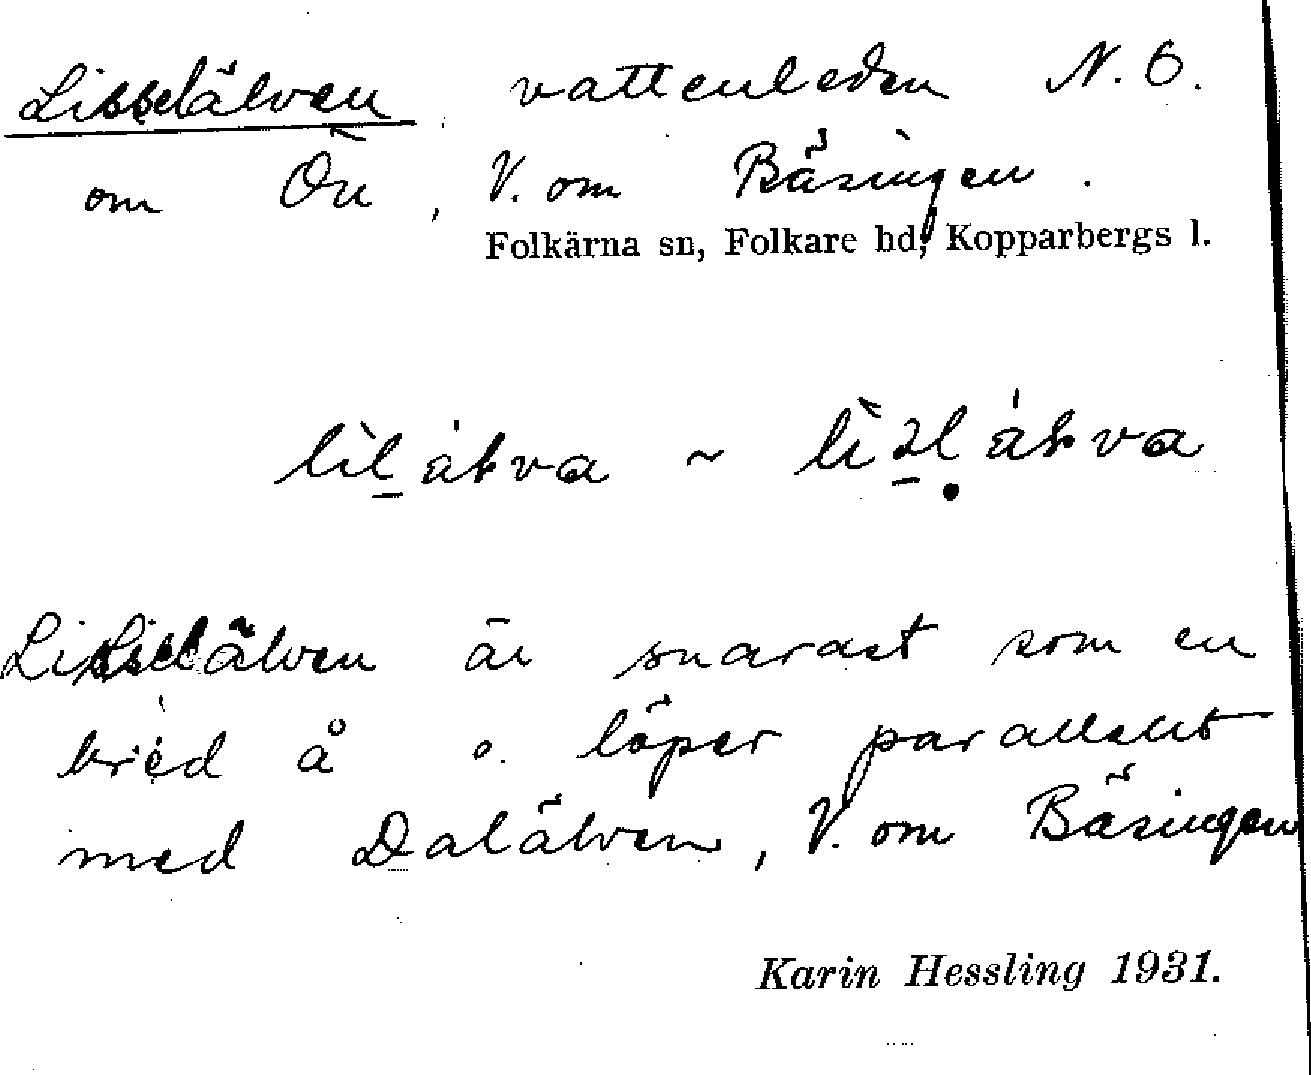 Lisselälven, vattenleden N. Ö.
om Ön, V. om Bäsingen.
Folkärna sn, Folkare hd, Kopparbergs l.
Lisselälven är snarast som en
bred å o. löper parallellt
med Dalälven, V. om Bäsingen
Karin Hessling 1931.